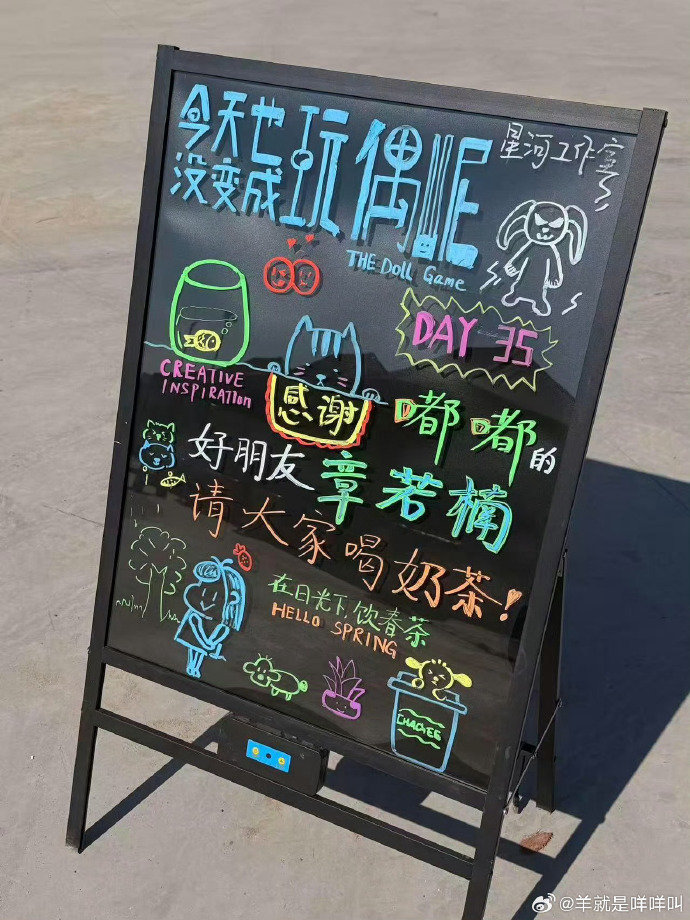 今天也
没变成玩偶呢
星河工作室
THE Doll Game
DAY 35
CREATIVE
INSPIRATION
感谢
嘟嘟的
好朋友章若楠
请大家喝奶茶!
在日光下,饮春茶
HELLO SPRING
CHAGEE
@羊就是咩咩叫